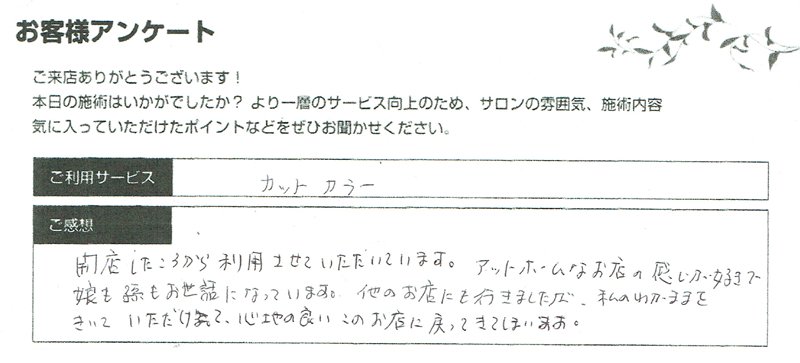 お客様アンケート
ご来店ありがとうございます！
本日の施術はいかがでしたか？ より一層のサービス向上のため、サロンの雰囲気、施術内容
気に入っていただけたポイントなどをぜひお聞かせください。
ご利用サービス カット カラー
ご感想
開店したころから利用させていただいています。アットホームなお店の感じが好きで
娘も孫もお世話になっています。他のお店にも行きましたが、私のわがままを
きいていただけて、心地の良いこのお店に戻ってきてしまいます。